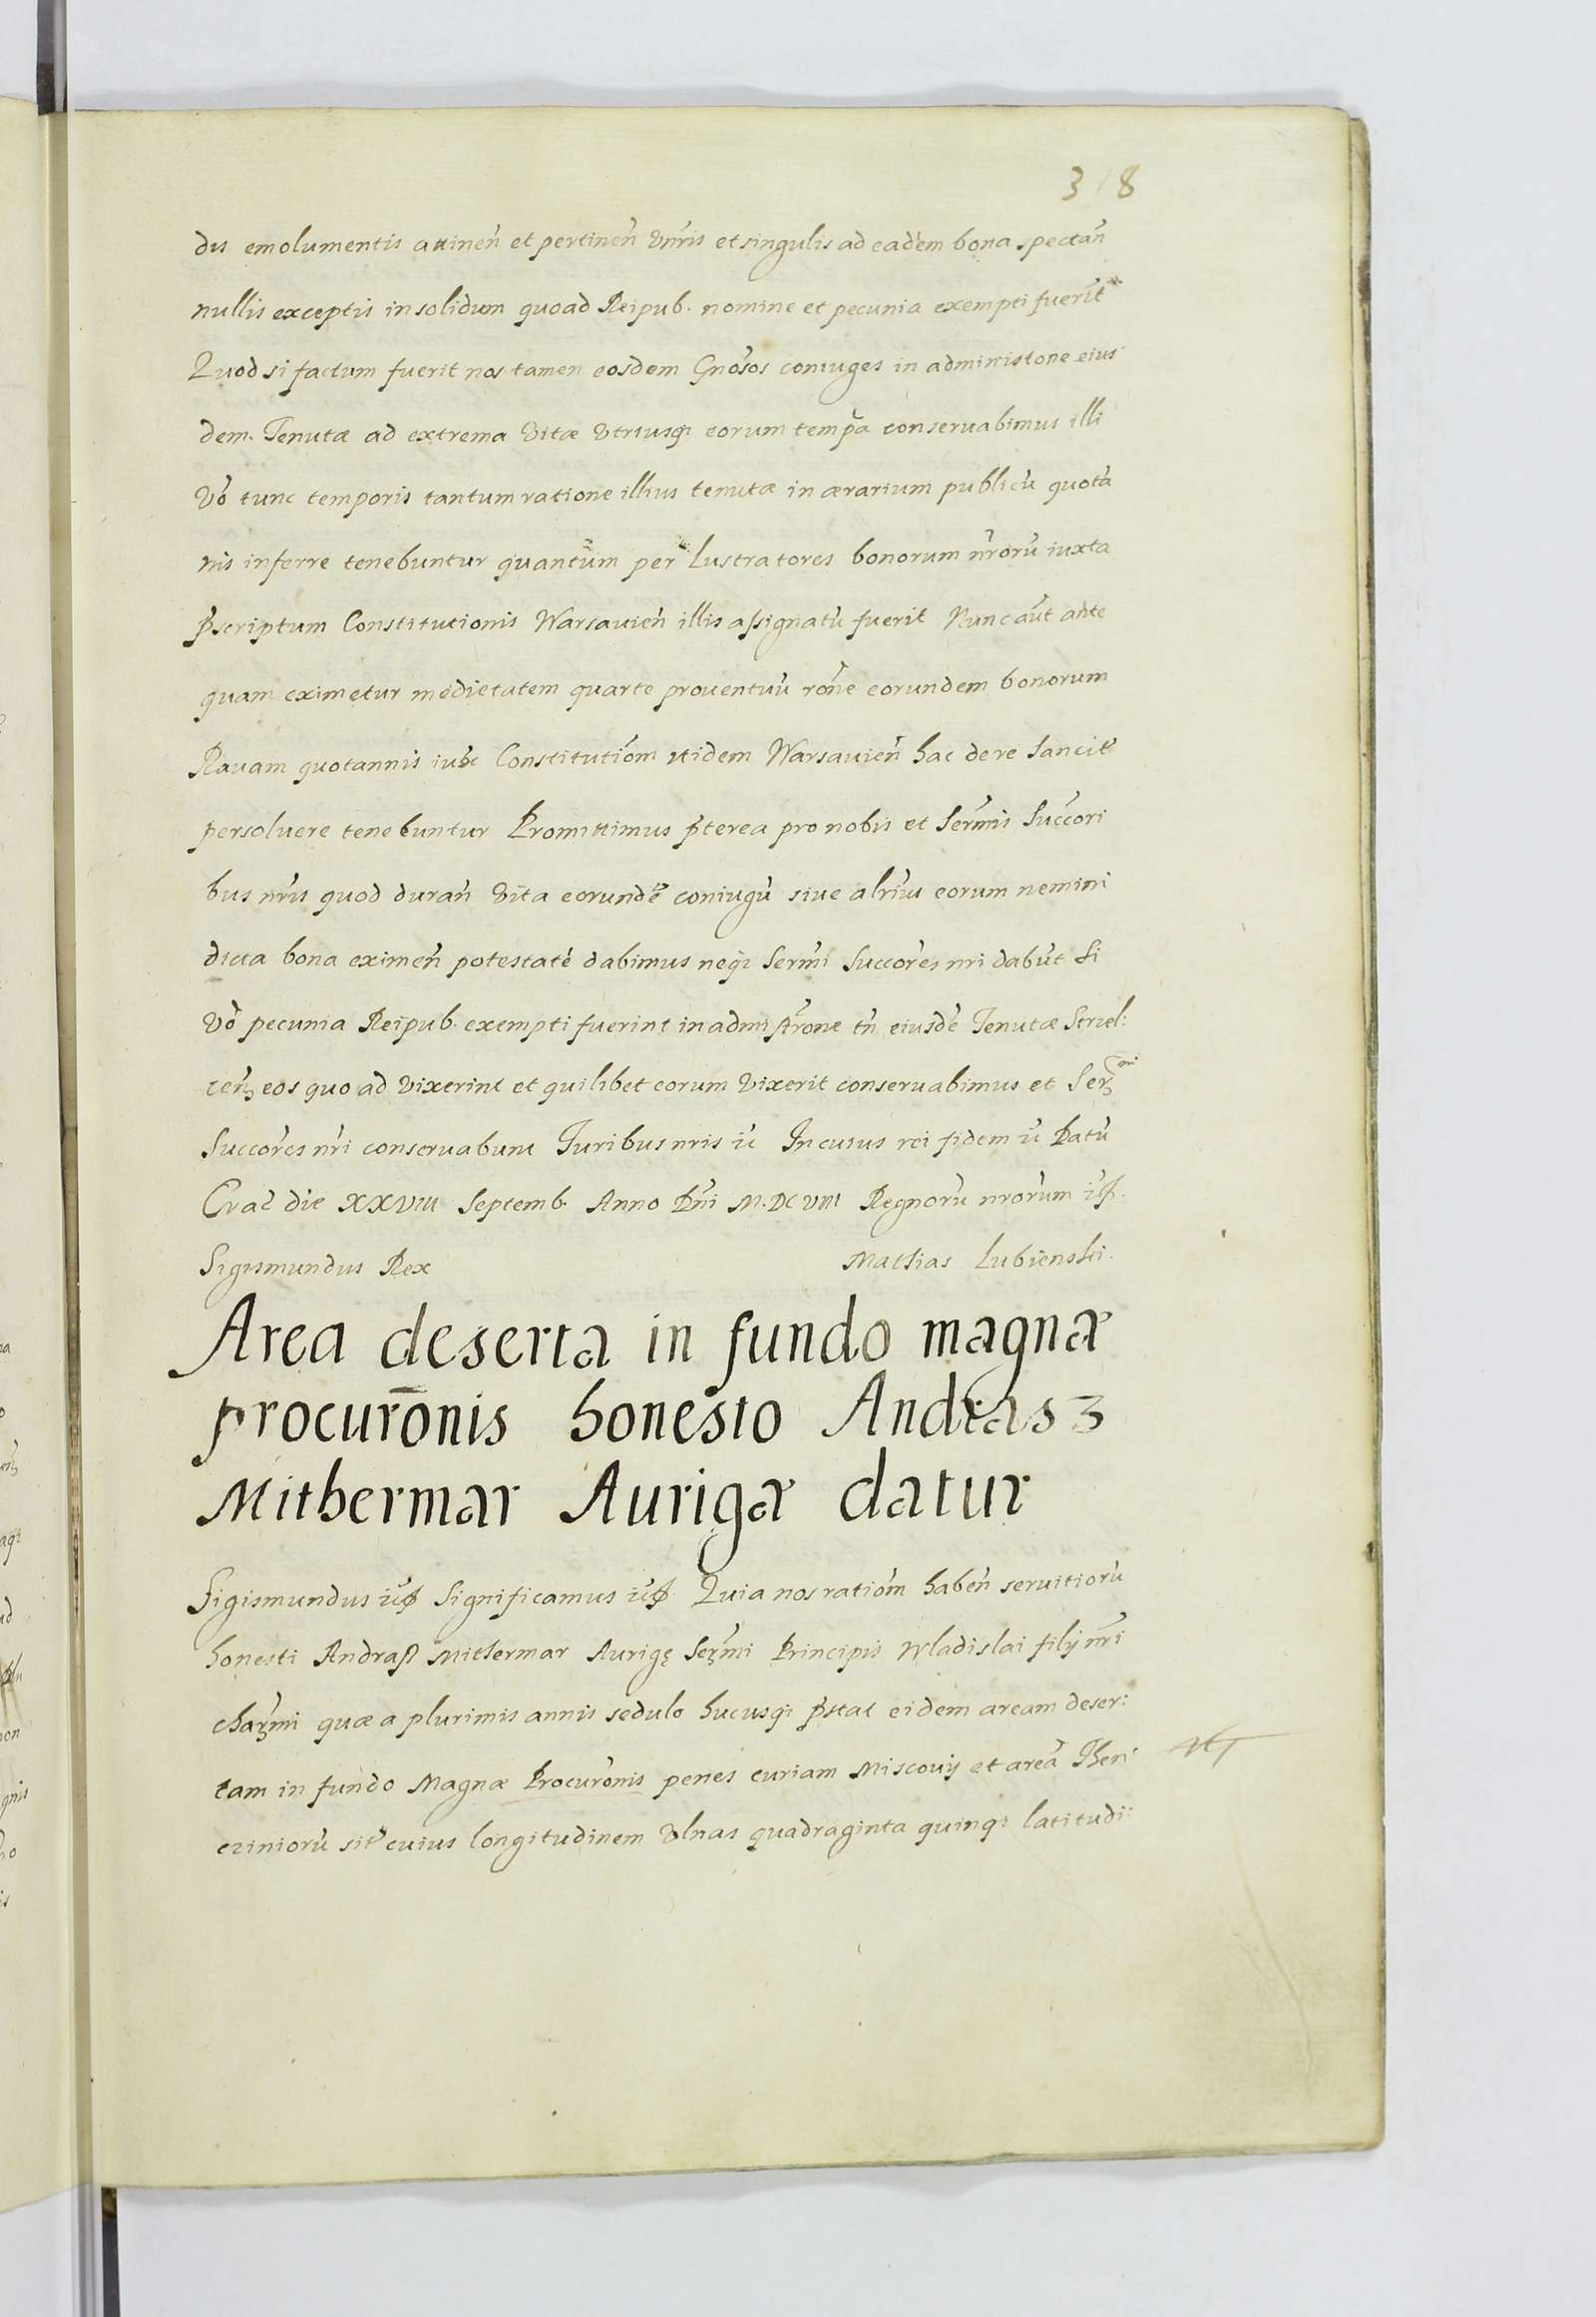 318
dis emolumentis attineñ et pertineñ vñris et singulis ad eadem bona spectañ
nullis exceptis in solidum quoad Reipub. nomine et pecunia exempti fuerĩt
Quod si factum fuerit nos tamen eosdem Gnõsos coniuges in administone eius
dem. Tenutæ ad extrema vitæ vtriusq; eorum tempa conseruabimus illi
võ tunc temporis tantum ratione illius tenutæ in ærarium publicũ quotã
nis inferre tenebuntur quantum per Lustratores bonorum nr̃orũ iuxta
p̃scriptum Constitutionis Warsauieñ illis assignatũ fuerit Nunc aũt ante
quam eximetur medietatem quarte prouentuũ rõne eorundem bonorum
Rauam quotannis iux Constitutiõm itidem Warsauieñ hac de re sancit
persoluere tenebuntur Promittimus p̃terea pro nobis et Serm̃is Succori
bus nr̃is quod durañ vita eorundẽ coniugũ siue alrĩus eorum nemini
dicta bona eximeñ potestatẽ dabimus neq; Serm̃i Succõres nri dabũt Si
võ pecunia Reipub. exempti fuerint in admistrõne tñ eiusdẽ Tenutæ Strzel:
ceñ eos quo ad vixerint et quilibet eorum vixerit conseruabimus et Ser
Succõres nr̃i conseruabunt Juribus nris ič In cuius rei fidem ič Datũ
Crac die XXVIII Septemb. Anno Dñi M.DCVIII Regnorũ nrorum
Sigismundus Rex Mathias Lubienski.
Area deserta in fundo magnæ
procurõnis honesto Andrasz
Mithermar Aurigæ datur
Sigismundus Significamus Quia nos ratiõm habeñ seruitiorũ
honesti Andraß Mithermar Aurigę Serm̃i Principis Wladislai filij nr̃i
charm̃i quæ a plurimis annis sedulo hucusq; p̃stat eidem aream deser:
tam in fundo Magnæ Procurõnis penes curiam Miscouij et areã Theri
cziniorũ sit cuius longitudinem vlnas quadraginta quinq; latitudi: